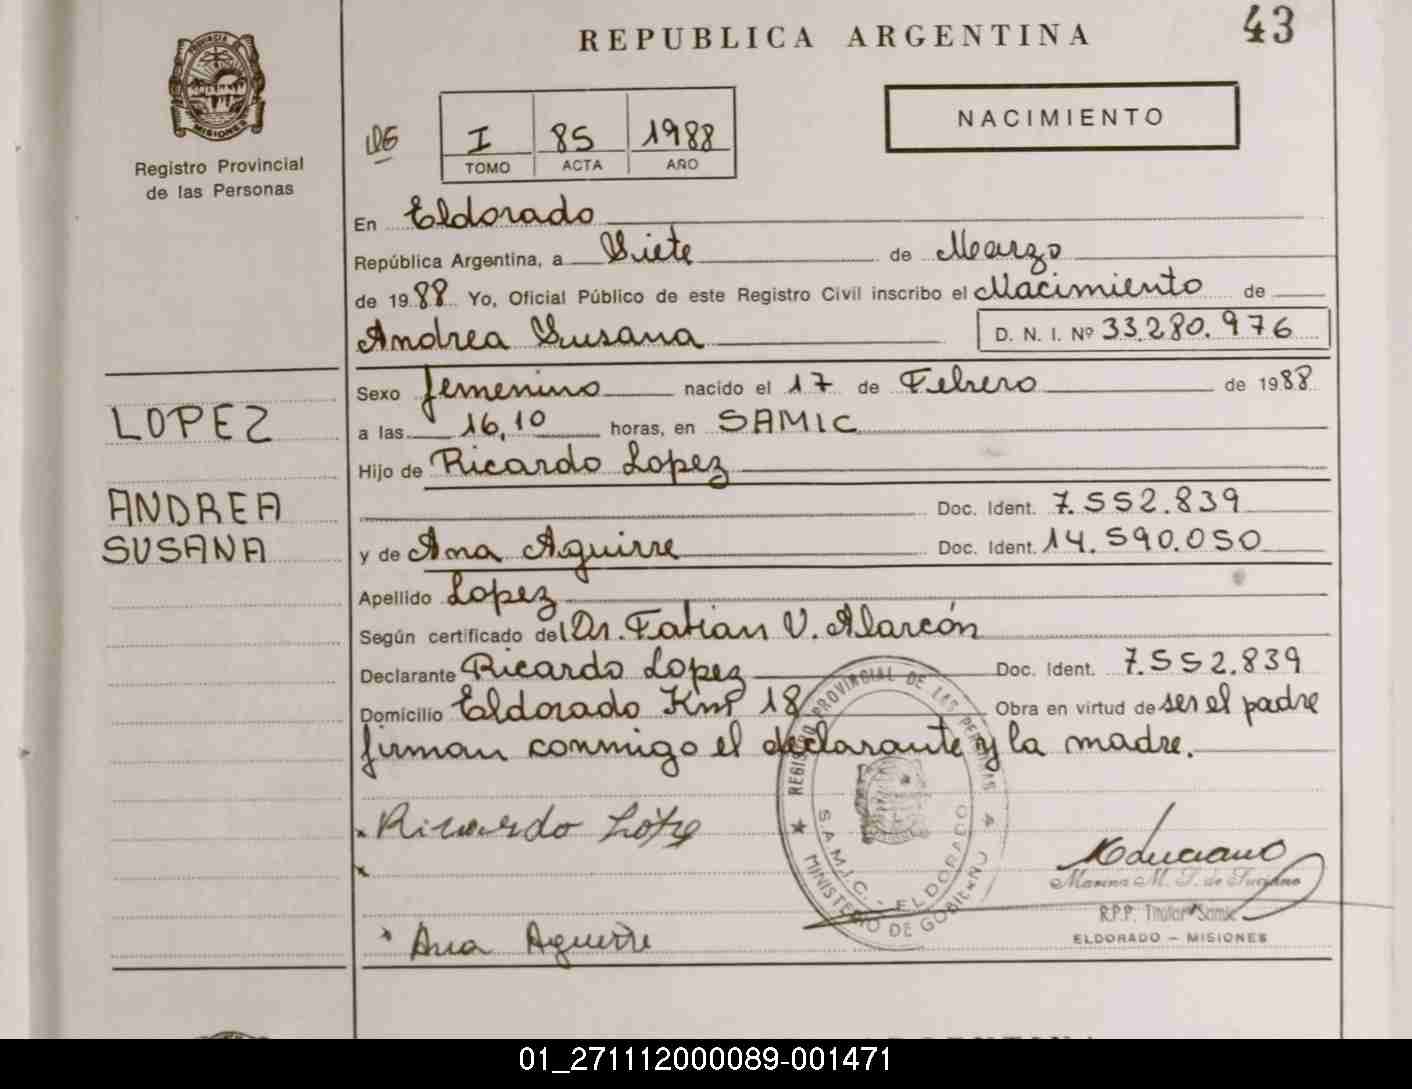 REPUBLICA ARGENTINA
43
PROVINCIA DE MISIONES
Registro Provincial
de las Personas
I 85 1988
TOMO ACTA AÑO
NACIMIENTO
En Eldorado
República Argentina, a Siete de Marzo
de 1988 Yo, Oficial Público de este Registro Civil inscribo el Nacimiento de
Andrea Susana D. N. I. Nº 33.280.976
Sexo femenino nacido el 17 de Febrero de 1988
LOPEZ
a las 16,10 horas, en SAMIC
Hijo de Ricardo Lopez
ANDREA
Doc. Ident. 7.552.839
SUSANA
y de Ana Aguirre Doc. Ident. 14.590.050
Apellido Lopez
Según certificado del Dr. Fabian V. Alarcón
Declarante Ricardo Lopez Doc. Ident. 7.552.839
Domicilio Eldorado Km 18 Obra en virtud de ser el padre
firman conmigo el declarante y la madre.
REGISTRO PROVINCIAL DE LAS PERSONAS
S.A.M.I.C. - ELDORADO
MINISTERIO DE GOBIERNO
Ricardo Lopez
Marina M. de
R.P.P. Titular Samic
ELDORADO - MISIONES
Ana Aguirre
01_271112000089-001471